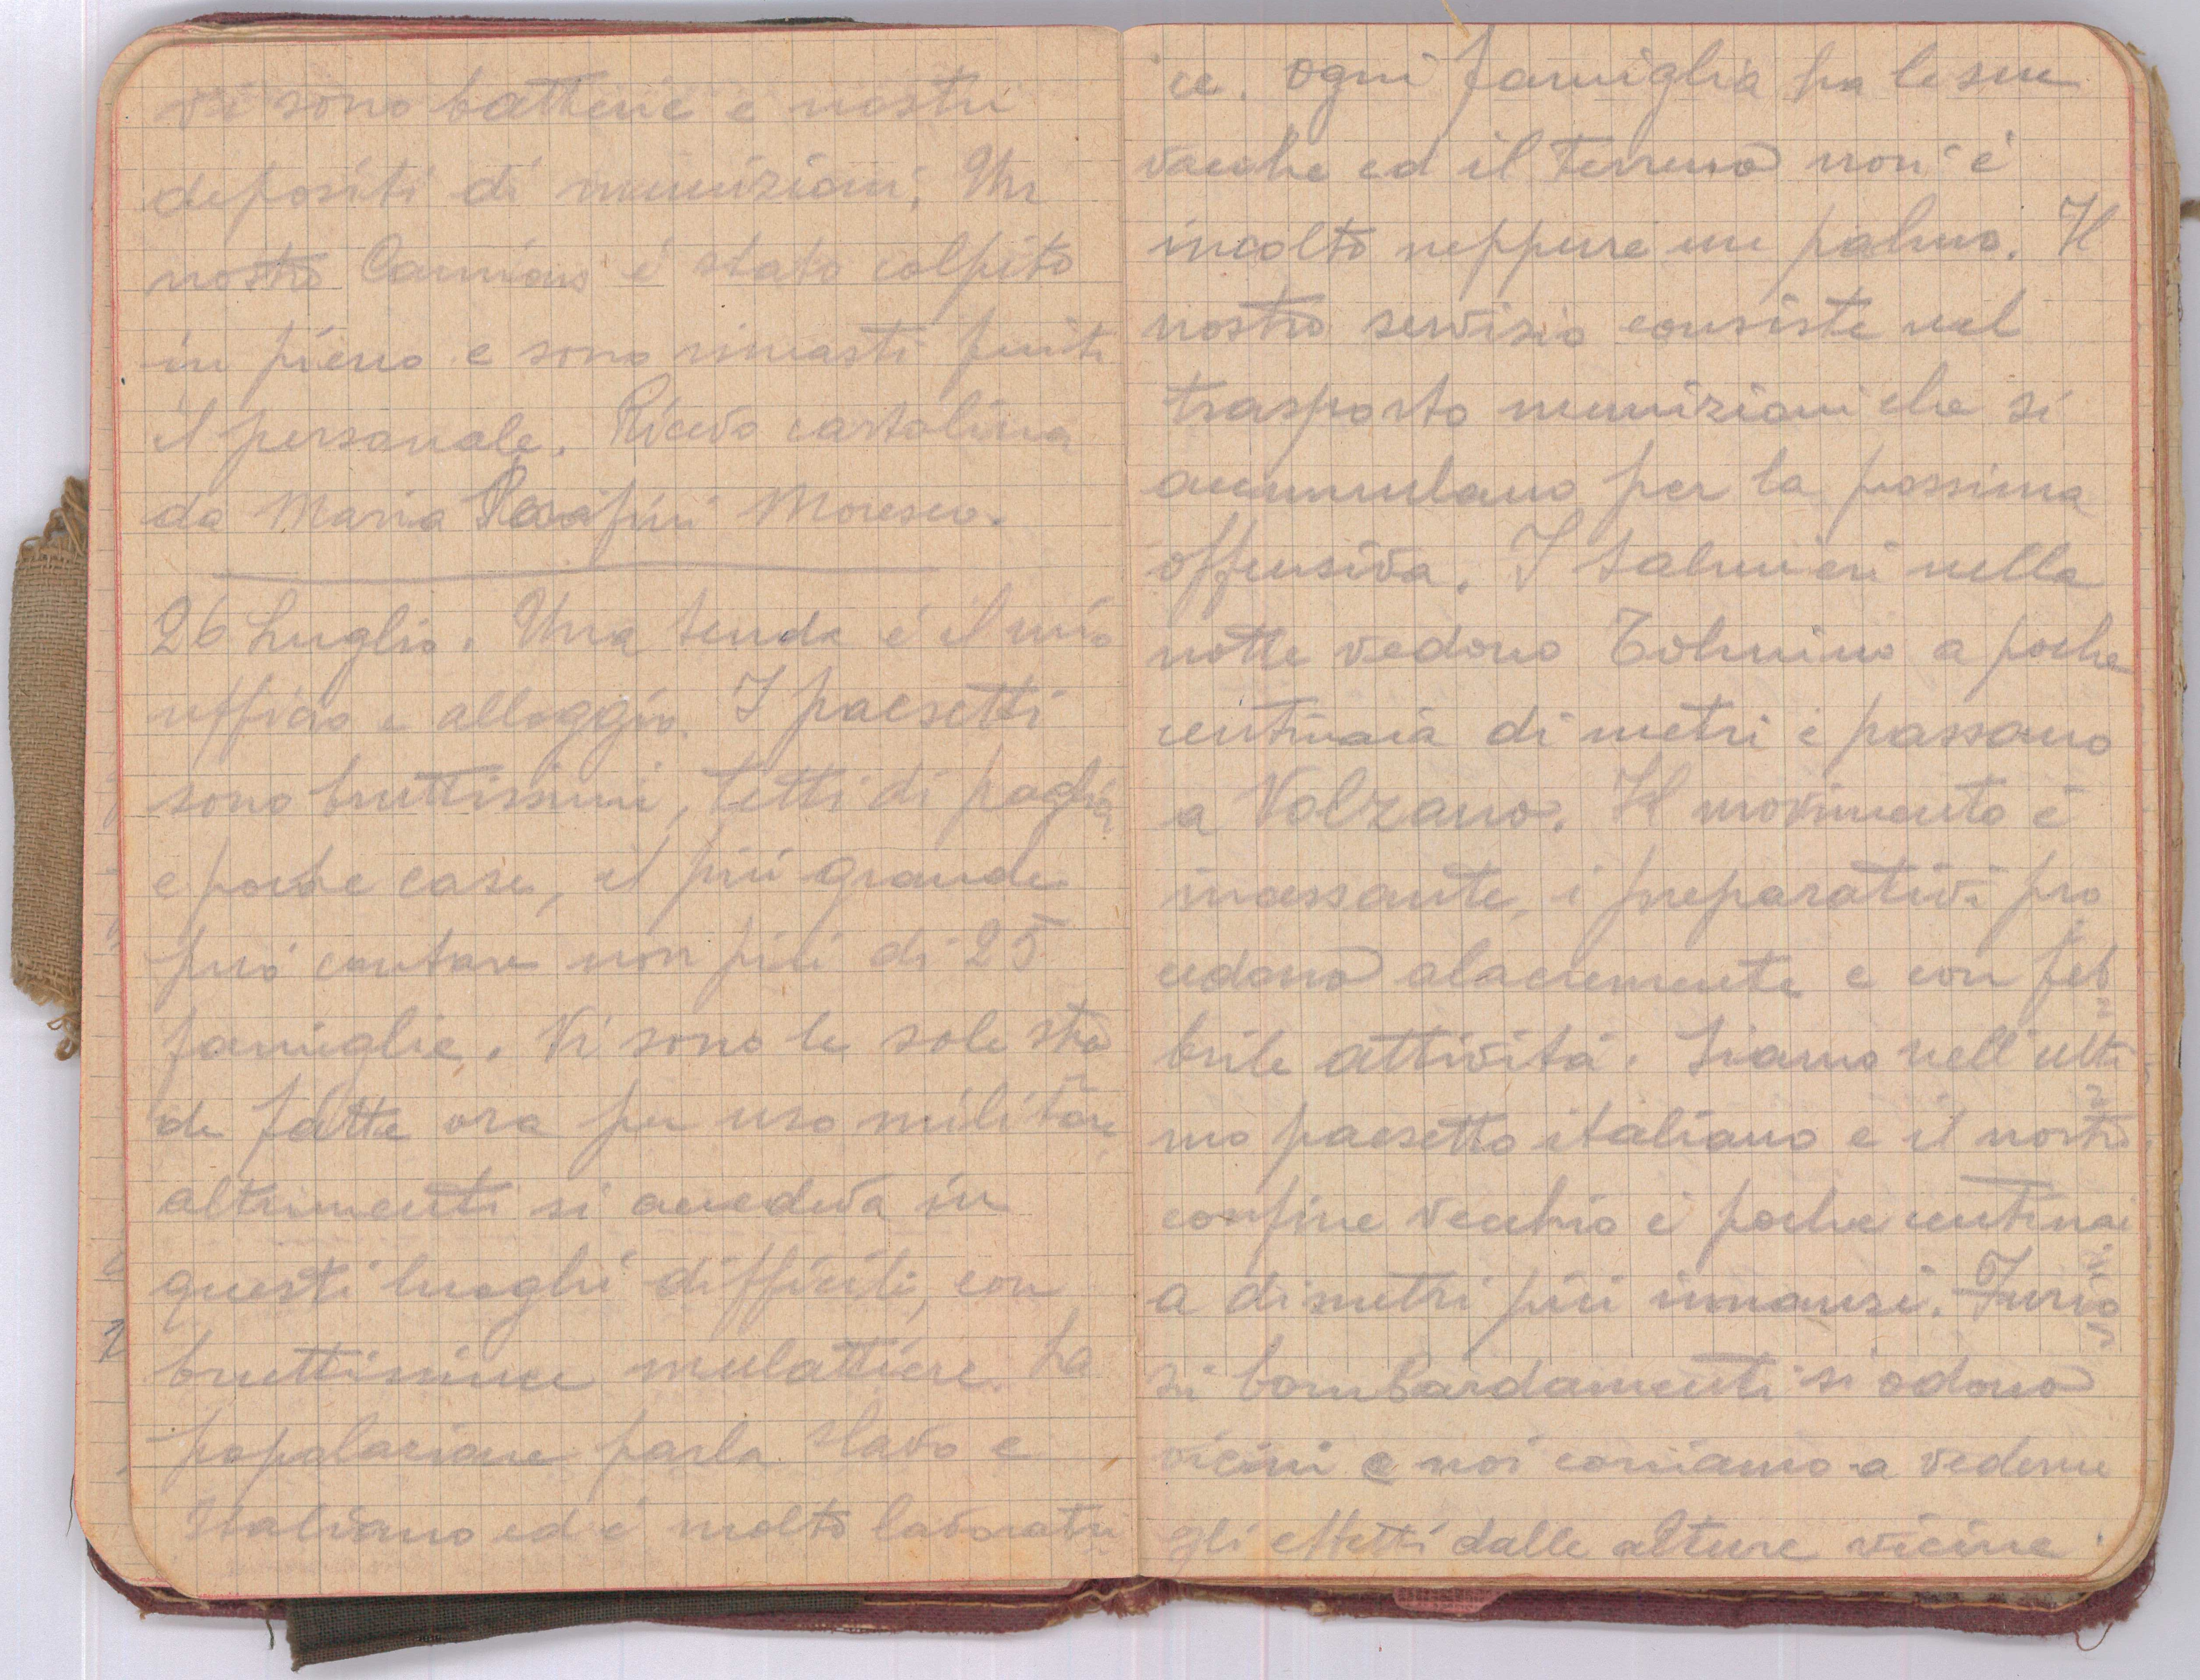 vi sono batterie e nostri
depositi di munizioni. Un
nostro Camions é stato colpito
in pieno e sono rimasti feriti
il personale. Ricevo cartolina
da Maria Moresco.
26 Luglio. Una tenda é il mio
ufficio e alloggio. I paesetti
sono bruttissimi, tetti di paglia
e poche case, il più grande
può contare non più di 25
famiglie. Vi sono le sole stra
de fatte ora per uso militare
altrimenti si accedeva in
questi luoghi difficili, con
bruttissime mulattiere. La
popolazione parla slavo e
Italiano ed é molto lavoratri
ce. Ogni famiglia ha le sue
vacche ed il terreno non é
incolto neppure un palmo. Il
nostro servizio consiste nel
trasporto munizioni che si
accumulano per la prossima
offensiva. I salmieri nella
notte vedono Tolmino a poche
centinaia di metri e passano
a Volzano. Il movimento é
incessante, i preparativi pro
cedono alacremente e con feb=
brile attività. Siamo nell'ulti=
mo paesetto italiano e il nostro
confine vecchio é poche centinai=
a di metri più innanzi. Furio=
si bombardamenti si odono
vicini e noi corriamo a vederne
gli effetti dalle alture vicine.